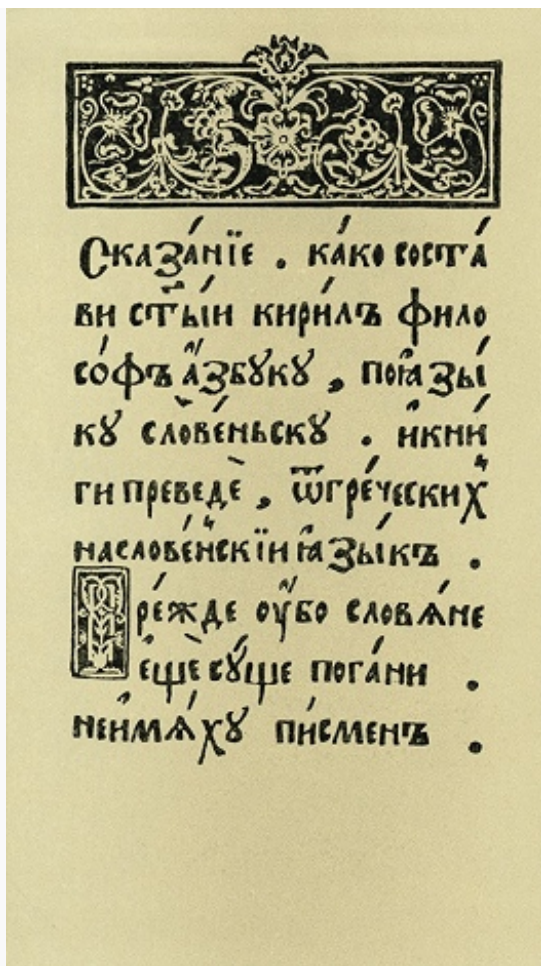 Сказа́нїе . ка́ко соста́
ви ст҃ы́и кири́лъ фило
со́фъ а҆́збꙋкꙋ , поꙗзы́
кꙋ слове́ньскꙋ . и҆кни́
ги преведѐ , ѿгре́ческихъ
насловен́скїи ꙗзы́къ .
Пре́жде оу҆́бо словѧ́не
е҆щѐ сꙋ́ще пога́ни .
неи҆мѧ́хꙋ пи́сменъ .